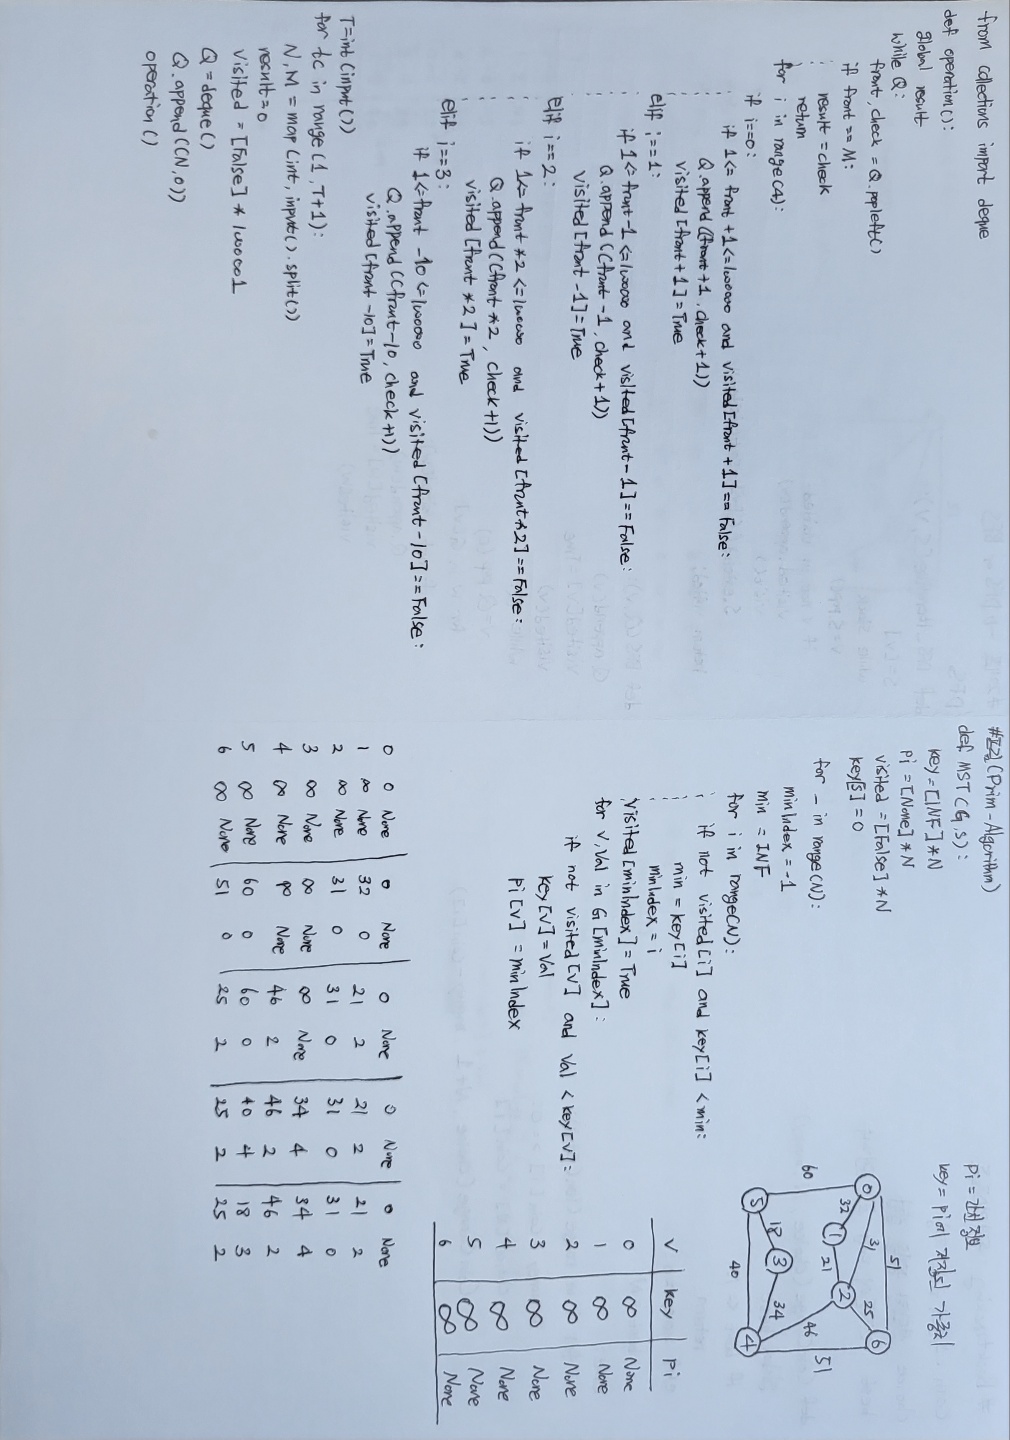 from collections import deque
def operation():
global result
while Q:
front, check = Q.popleft()
if front == M:
result = check
return
for i in range(4):
if i==0:
if 1<= front +1<=1000000 and visited[front +1]== False:
Q.append((front+1, check+1))
visited[front+1]=True
elif i==1:
if 1<= front-1 <=1000000 and visited[front-1]==False:
Q.append((front-1, check+1))
visited[front-1]=True
elif i==2:
if 1<= front *2 <=1000000 and visited[front*2]==False:
Q.append((front *2, check+1))
visited[front *2]=True
elif i==3:
if 1<=front -10<=1000000 and visited[front-10]==False:
Q.append((front-10, check+1))
visited[front-10]=True
T=int(input())
for tc in range(1,T+1):
N,M = map(int, input().split())
result=0
visited = [False] * 1000001
Q=deque()
Q.append((N,0))
operation()
#프림(Prim-Algorithm)
def MST(G,s):
key=[INF]*N
pi=[None]*N
visited=[False]*N
key[s]=0
for _ in range(N):
minIndex = -1
min = INF
for i in range(N):
if not visited[i] and key[i] < min:
min = key[i]
minIndex = i
visited[minIndex]=True
for v,val in G[minIndex]:
if not visited[v] and val < key[v]:
key[v]=val
pi[v] = minIndex
pi = 간선 정보
key = pi에 저장된 가중치
51
0 31 25 6
32 1 21 2
60 46 51
18 3 34
5 40 4
V key pi
0 ∞ None
1 ∞ None
2 ∞ None
3 ∞ None
4 ∞ None
5 ∞ None
6 ∞ None
0 0 None 0 None 0 None 0 None 0 None
1 ∞ None 32 0 21 2 21 2 21 2
2 ∞ None 31 0 31 0 31 0 31 0
3 ∞ None ∞ None ∞ None 34 4 34 4
4 ∞ None ∞ None 46 2 46 2 46 2
5 ∞ None 60 0 60 0 40 4 18 3
6 ∞ None 51 0 25 2 25 2 25 2